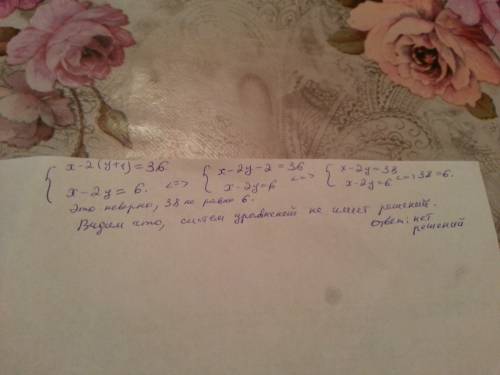 x-2(y+1)=36. <=> x-2y-2=36 <=> x-2y=38 <=> 38=6.
x-2y=6. x-2y=6 x-2y=6
Это неверно, 38 не равно 6.
Видим что, систем уравнений не имеет решений.
Ответ: нет
решений